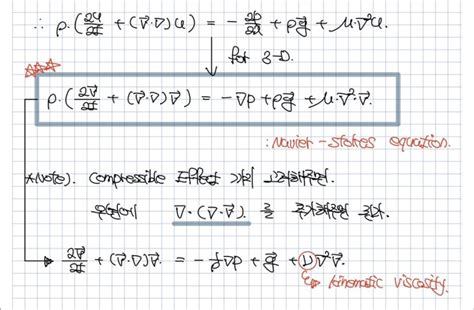 ∴ ρ·(∂u/∂t + (V⃗·∇)u) = -∂p/∂x + ρg⃗ + μ·∇²u.
for 3-D.
☆☆☆
ρ·(∂V⃗/∂t + (V⃗·∇)V⃗) = -∇p + ρg⃗ + μ·∇²·V⃗.
: Navier-stokes equation.
*Note). compressible Effect 까지 고려하려면.
우변에 ∇·(∇·V⃗). 를 추가해주면 된다.
∂V⃗/∂t + (V⃗·∇)V⃗ = -1/ρ ∇p + g⃗ + ν∇²V⃗
↳ kinematic viscosity.